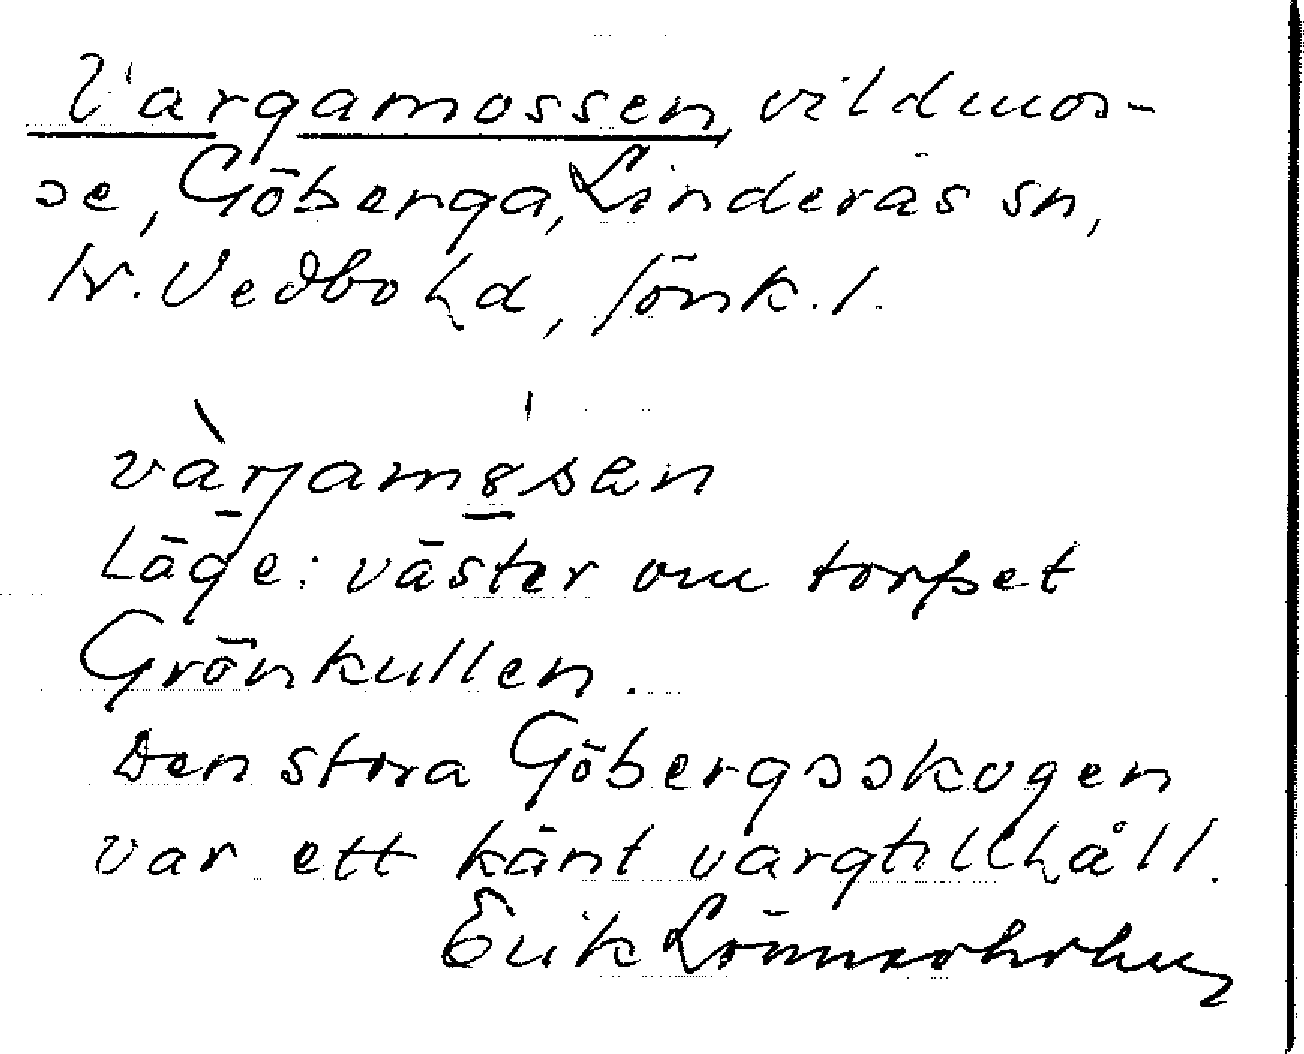 Vargamossen, vildmos-
se, Göberga, Linderås sn,
N. Vedbo hd, Jönk. l.
vàrjamısen
Läge: väster om torpet
Grönkullen.
Den stora Göbergsskogen
var ett känt vargtillhåll.
Erik